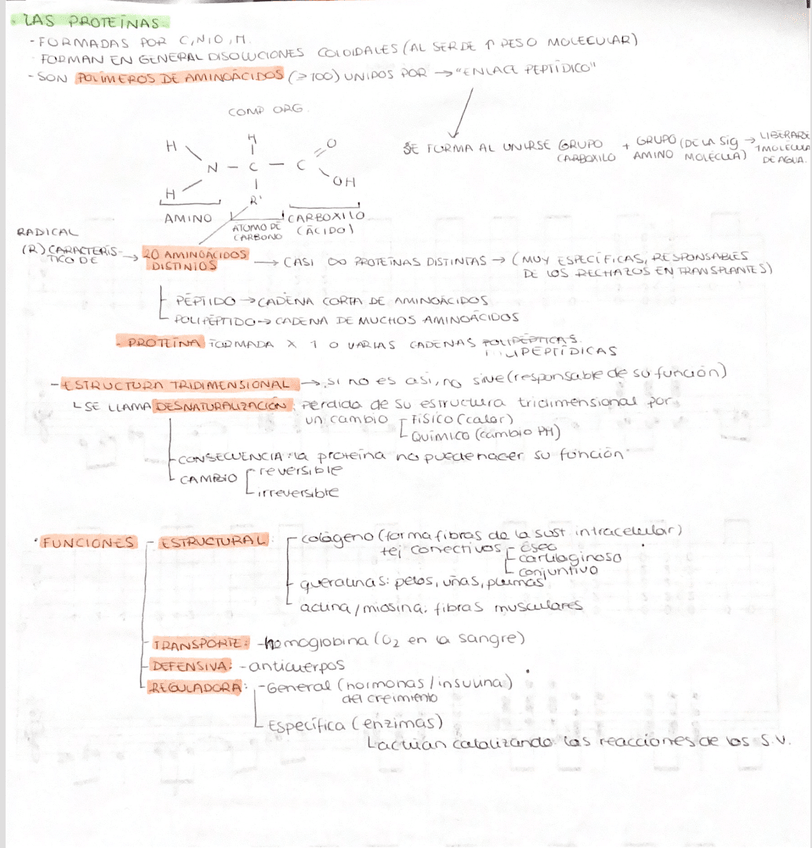 · LAS PROTEÍNAS
- FORMADAS POR C,N,O,H.
· FORMAN EN GENERAL DISOLUCIONES COLOIDALES (AL SER DE ↑ PESO MOLECULAR)
- SON POLÍMEROS DE AMINOÁCIDOS (≥100) UNIDOS POR → "ENLACE PEPTÍDICO"
COMP ORG.
SE FORMA AL UNIRSE GRUPO CARBOXILO + GRUPO AMINO (DE LA SIG MOLECULA) → LIBERARE 1 MOLECULA DE AGUA.
H H O
N - C - C
H R' OH
AMINO ATOMO DE CARBONO CARBOXILO (ÁCIDO)
RADICAL
(R) CARACTERÍSTICO DE → 20 AMINOÁCIDOS DISTINTOS → CASI ∞ PROTEÍNAS DISTINTAS → (MUY ESPECÍFICAS, RESPONSABLES DE LOS RECHAZOS EN TRANSPLANTES)
PÉPTIDO → CADENA CORTA DE AMINOÁCIDOS
POLIPÉPTIDO → CADENA DE MUCHOS AMINOÁCIDOS
- PROTEÍNA FORMADA X 1 O VARIAS CADENAS POLIPÉPTICAS
LIPEPTÍDICAS
- ESTRUCTURA TRIDIMENSIONAL → si no es asi, no sirve (responsable de su función)
SE LLAMA DESNATURALIZACIÓN: perdida de su estructura tridimensional por
un cambio FÍSICO (calor)
QUÍMICO (cambio PH)
CONSECUENCIA: la proteína no puede hacer su función
CAMBIO reversible
irreversible
· FUNCIONES - ESTRUCTURAL: colágeno (forma fibras de la sust intracelular)
tej conectivos - óseo
cartilaginoso
conjuntivo
queratinas: pelos, uñas, plumas
actina/miosina: fibras musculares
TRANSPORTE: - hemoglobina (O₂ en la sangre)
DEFENSIVA: - anticuerpos
REGULADORA: - General (hormonas / insulina)
del crecimiento
Específica (enzimas)
actúan catalizando las reacciones de los S.V.